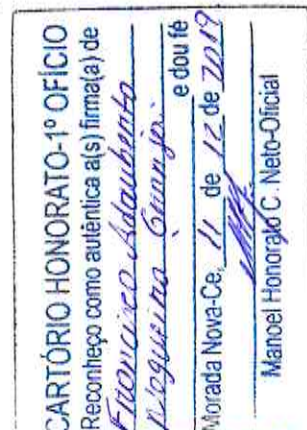 CARTÓRIO HONORATO-1º OFÍCIO
Reconheço como autêntica a(s) firma(a) de
Francisco Adauberto
Nogueira
e dou fé
Morada Nova-Ce, 11 de 12 de 2019
Manoel Honorato C. Neto-Oficial